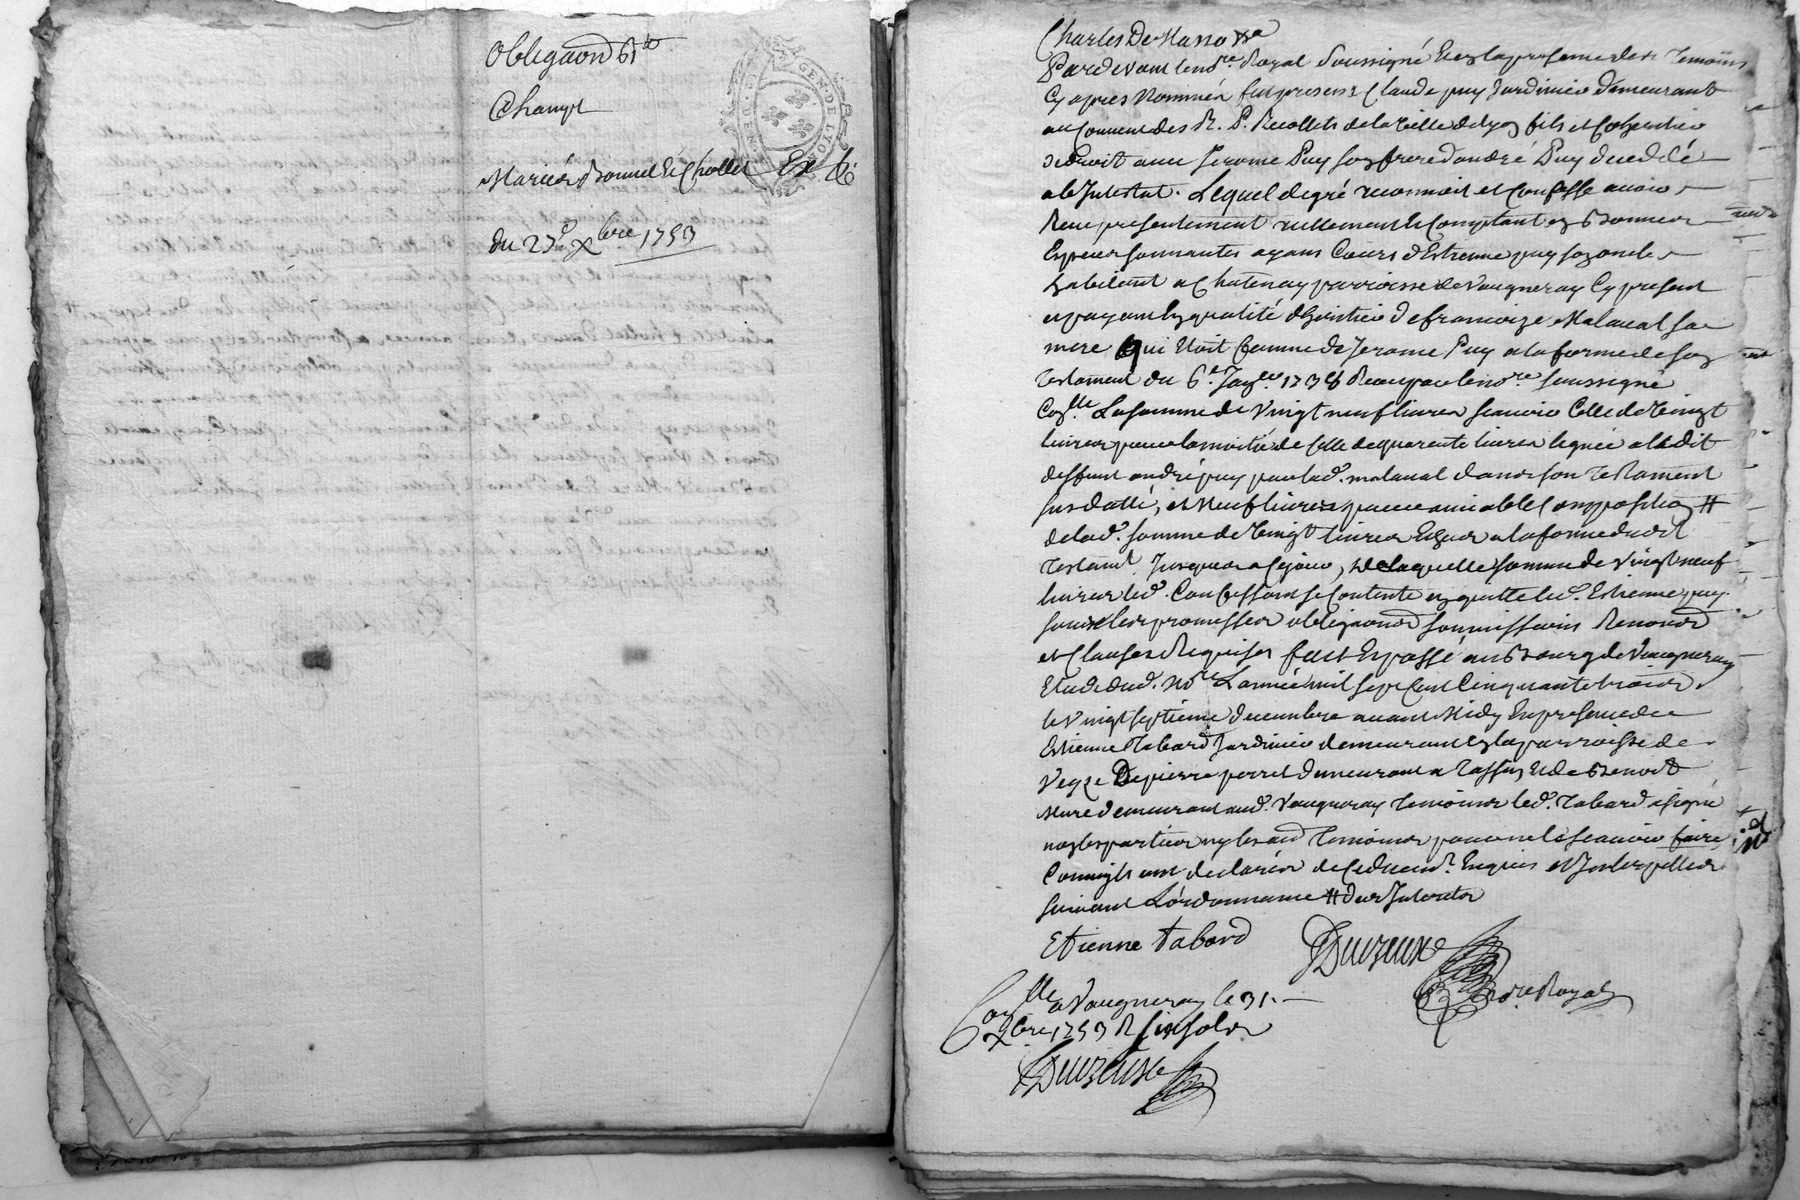 Obligaõn 61
Champt
Mariés Bonnet & Chollet Ex
du 27e xbre 1753
GEN. DE LYON
Charles De Masso
Pardevant le nore Royal soussigné & en la presence des temoins
Cy apres nommés fut present Claude puy Jardinier demeurant
au Couvent des R. P. Recollets de la ville de Lyon fils et Coheritier
de droit avec Jerome Puy son frere d'andré Puy decedé
ab Intestat. Lequel de gré reconnoit et Confesse avoir
Receu presentement reellement & Comptant en Bonnes
Especes sonnantes ayant Cours d'Estienne puy son oncle
habitant a Chatenay parroisse de Vaugneray Cy present
et payant en qualité d'heritier de francoize Malaval sa
mere qui etoit femme de Jerome Puy a la forme de son
testament du 6e Janer 173 Receu par le nore soussigné
Conlle La somme de vingt neuf livres scavoir Celle de vingt
livres pour la moitié de Celle de quarente livres leguée aledit
deffunt andré puy par lad. malaval dans son testament
sus datté, et neuf livres pour amiable Composition #
de lad. somme de vingt livres Echus a la forme dudit
testamt Jusques a Cejour, de laquelle somme de vingt neuf
livres led. Confessant se Contente en quitte led. Estienne puy
sous les promesses obligaõns soumissions Renonõns
et Clauses Requises fait & passé au Bourg de Vaugneray
Etude dud. nore L'année mil sept Cent Cinquante trois
le vingt septieme decembre avant Midy En presence de
Estienne Tabard Jardinier demeurant en la parroisse de
Veyze De pierre perret demeurant a Tassin & de Benoit
Mure demeurant aud. Vaugneray temoins led. Tabard a signé
non les parties ny les aud temoins pour ne le scavoir faire
Comm'ils ont declarés de Ce duemt. Enquis et Interpellés
suivant L'ordonnance # des Interets
Etienne tabard
Duzeux
nore Royal
Conlle a Vaugneray le 31.
xbre 1753 R six sols
Duzeux